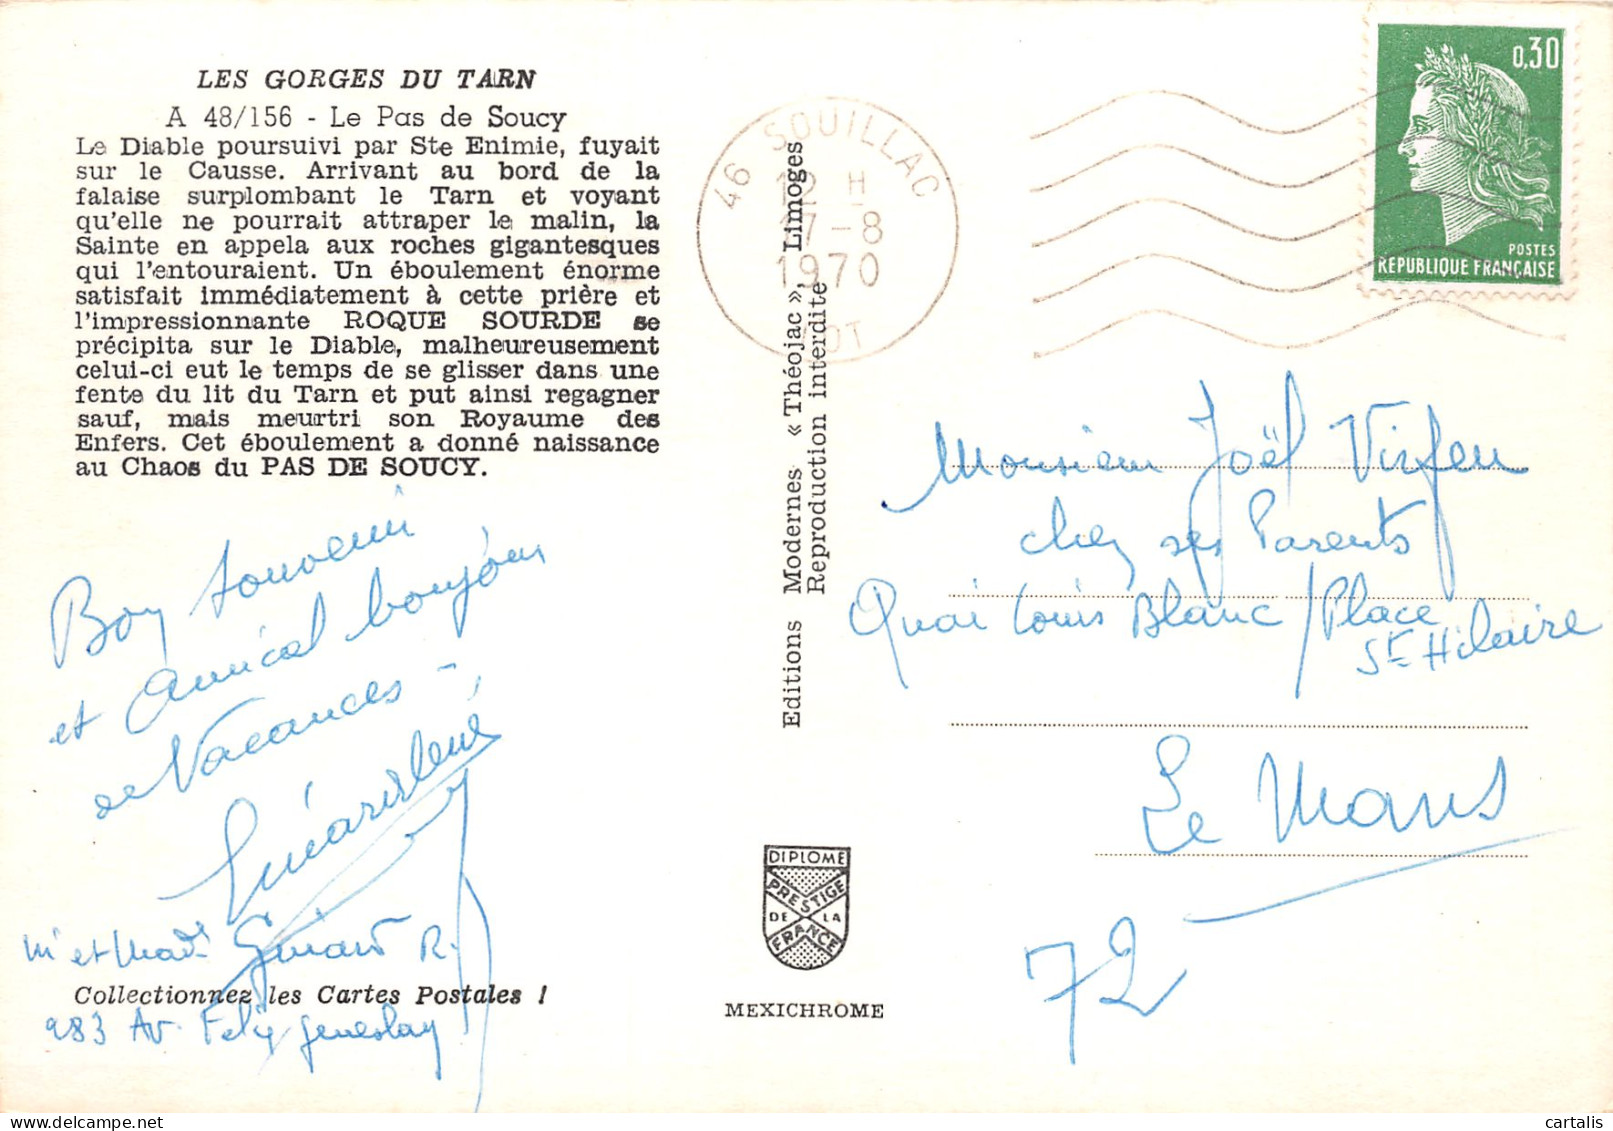 LES GORGES DU TARN
A 48/156 - Le Pas de Soucy
Le Diable poursuivi par Ste Enimie, fuyait
sur le Causse. Arrivant au bord de la
falaise surplombant le Tarn et voyant
qu'elle ne pourrait attraper le malin, la
Sainte en appela aux roches gigantesques
qui l'entouraient. Un éboulement énorme
satisfait immédiatement à cette prière et
l'impressionnante ROQUE SOURDE se
précipita sur le Diable, malheureusement
celui-ci eut le temps de se glisser dans une
fente du lit du Tarn et put ainsi regagner
sauf, mais meurtri son Royaume des
Enfers. Cet éboulement a donné naissance
au Chaos du PAS DE SOUCY.
Bon souvenir
et amical bonjour
de Vacances -
M et Mad
R.
Collectionnez les Cartes Postales !
283 Av. Felix Geneslay
Editions Modernes « Théojac », Limoges
Reproduction interdite
DIPLOME
PRESTIGE
DE LA
FRANCE
MEXICHROME
46 SOUILLAC
12 H
17-8
1970
LOT
0,30
POSTES
REPUBLIQUE FRANÇAISE
Monsieur Joël
chez ses Parents
Quai Louis Blanc / Place
St Hilaire
Le Mans
72
cartalis